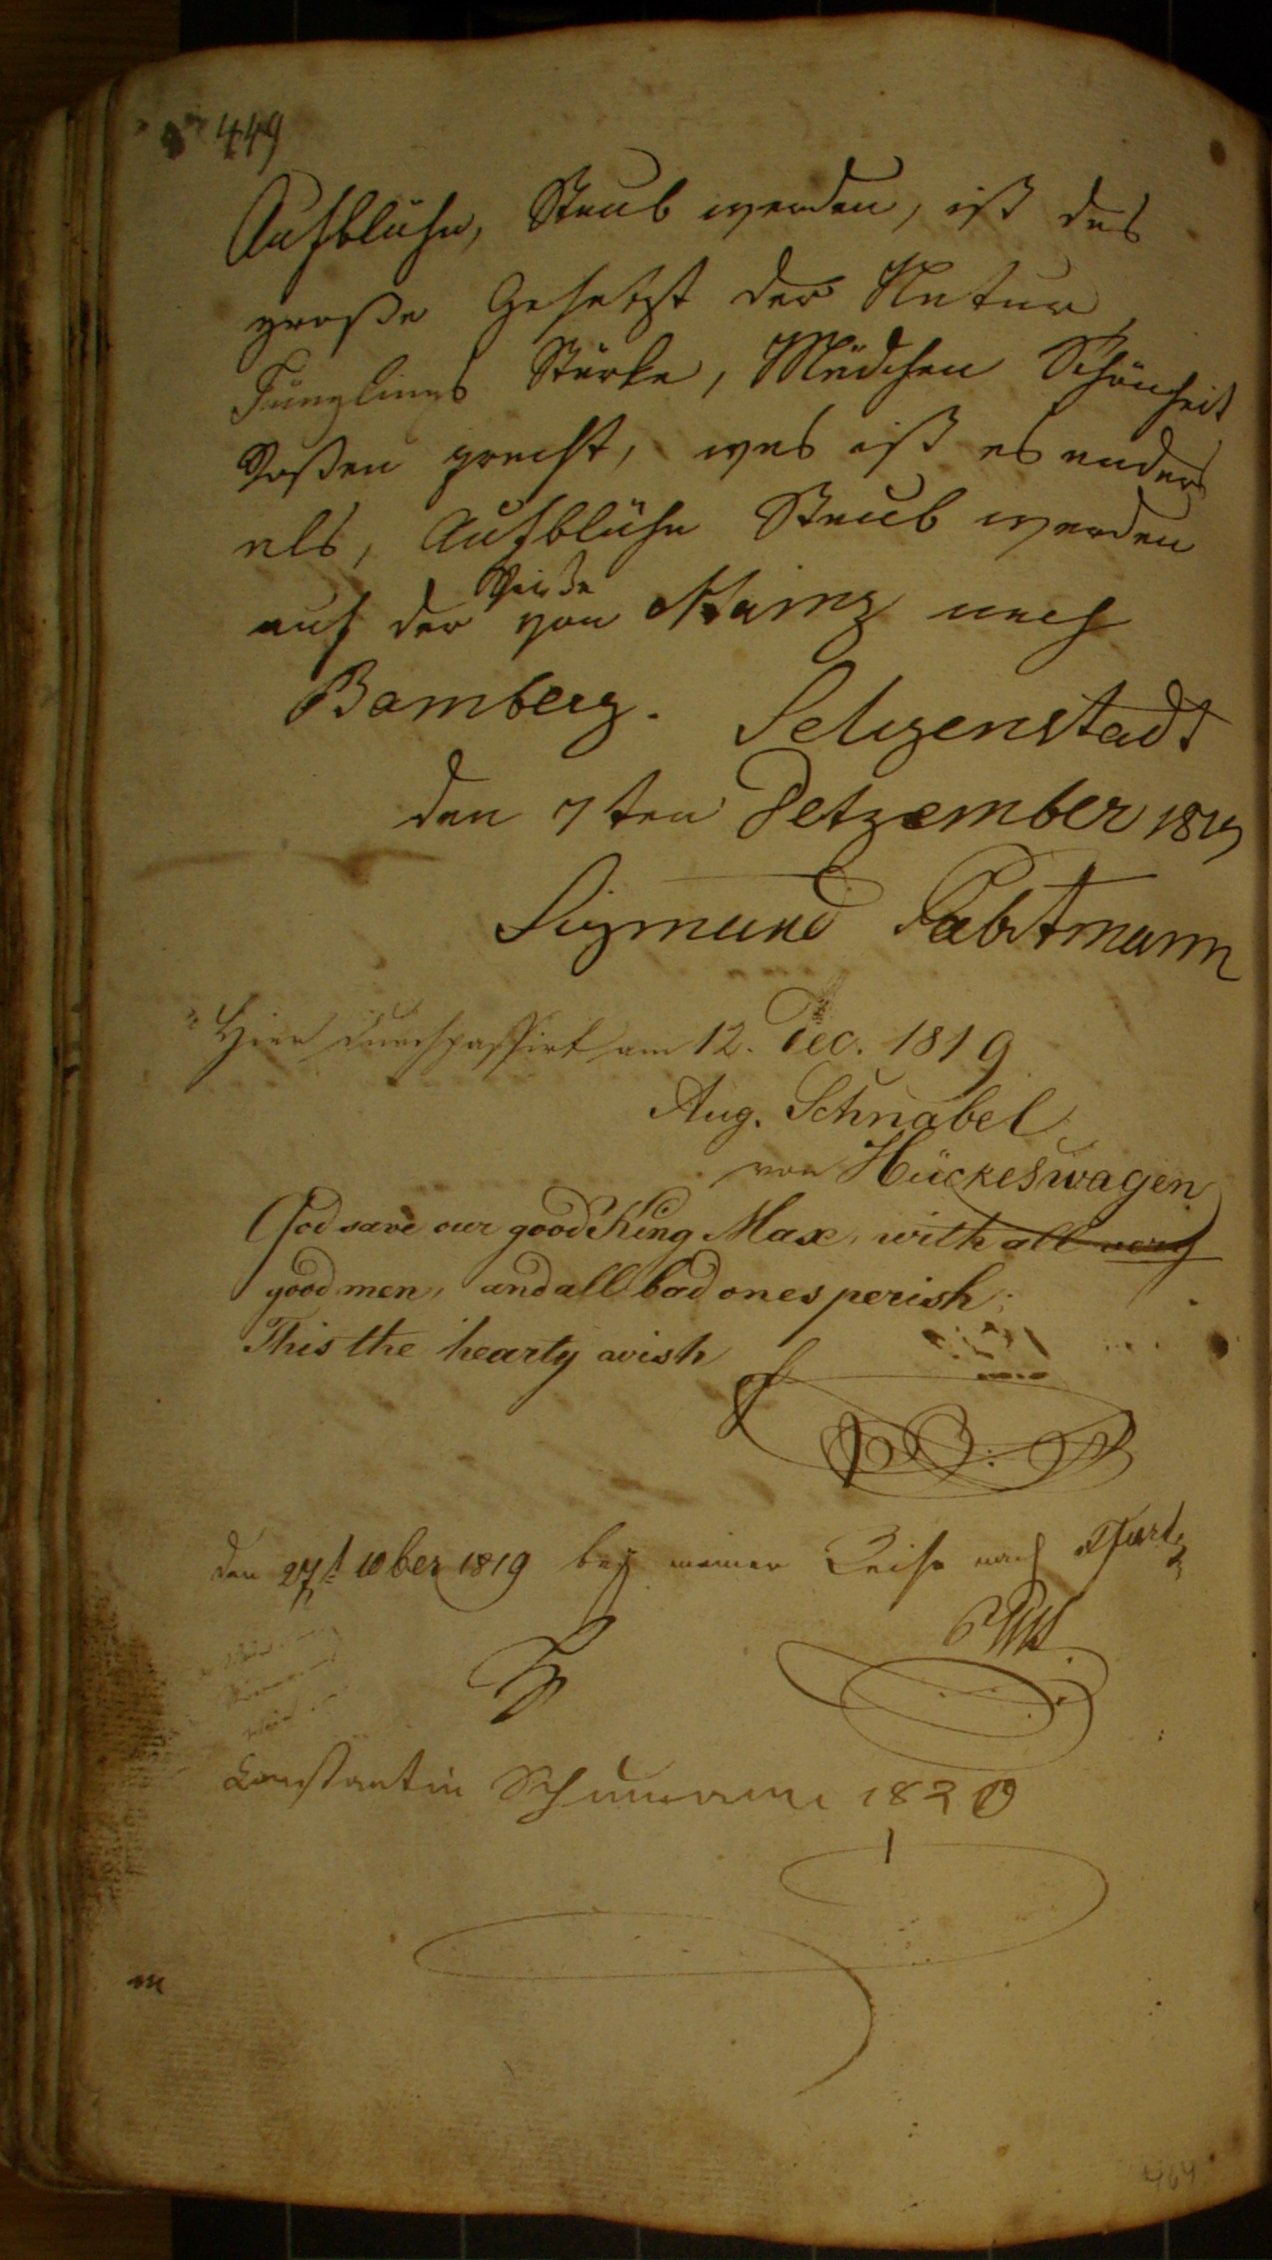 449
Aufblühn, Staub werden, ist das
große Gesetzt der Natur
Jünglings Stärke, Mädchen Schönheit
Rosen pracht, was ist es anders
als, Aufblühn Staub werden
auf der Reise von Mainz nach
Bamberg. Seligenstadt
den 7ten Detzember 1819
Sigmund Pabstmann
Hier durchpassirt am 12. Dec. 1819
Aug. Schnabel
von Hückeswagen
God save our good King Max, with all very
good men, and all bad ones perish;
This the hearty wish
den 27t 10ber 1819 bey meiner Reise nach
Constantin Schumann 1820
m
464